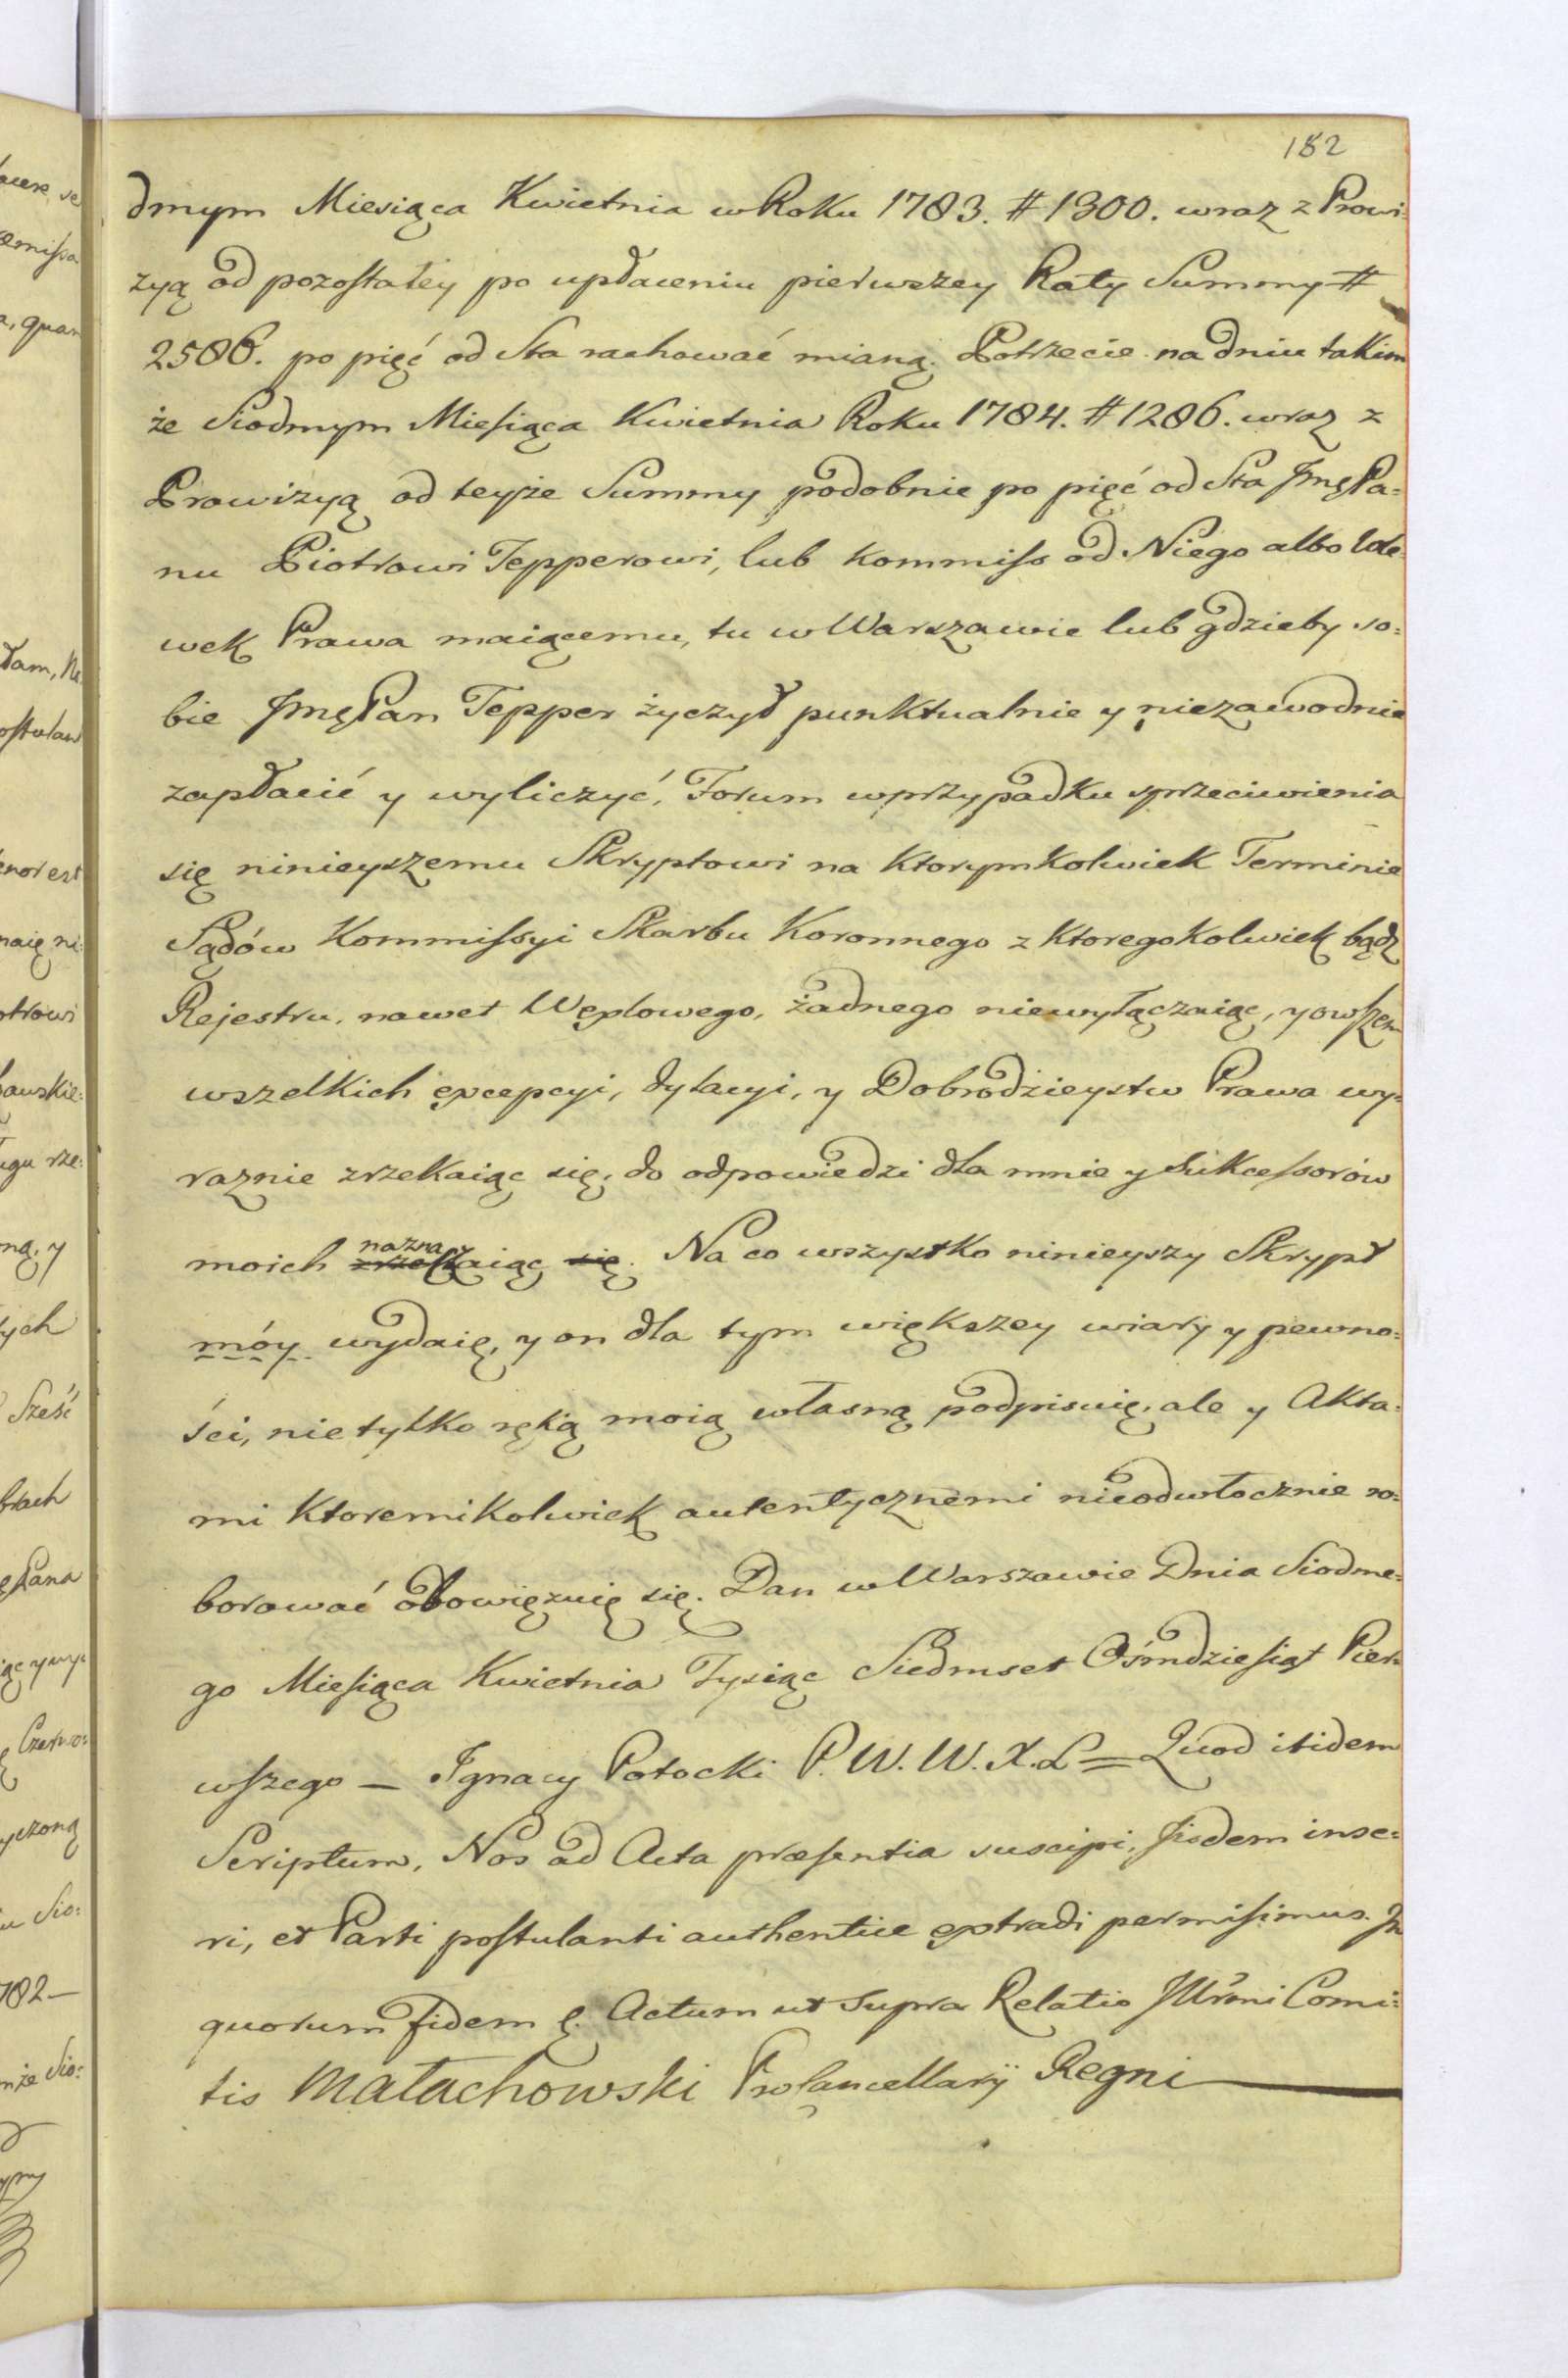 182
dmym Miesiąca Kwietnia w Roku 1783. # 1300. wraz z Prowi:
zyą od pozostałey po upłaceniu pierwszey Raty Summy #
2586. po pięć od Sta rachować mianą. Potrzecie na dniu takim
że Siodmym Miesiąca Kwietnia Roku 1784. # 1286. wraz z
Prowizyą od teyże Summy podobnie po pięć od Sta JmęPa:
nu Piotrowi Tepperowi, lub kommiss od Niego albo
wek Prawa maiącemu, tu w Warszawie lub gdzieby so:
bie JmęPan Tepper życzył punktualnie y niezawodnie
zapłacić y wyliczyć, Forum w przypadku sprzeciwienia
się ninieyszemu Skryptowi na ktorymkolwiek Terminie
Sądów Kommissyi Skarbu Koronnego z ktoregokolwiek bądz
Rejestru, nawet Wexlowego, żadnego niewyłączaiąc, y owszem
wszelkich excepcyi, dylacyi, y Dobrodzieystw Prawa wy:
raznie zrzekaiąc się, do odpowiedzi dla mnie y Sukcessorów
moich naznaczaiąc się. Na co wszystko ninieyszy Skrypt
móy wydaię, y on dla tym większey wiary y pewno:
ści, nie tylko ręką moią własną podpisuię, ale y Akta:
mi ktoremikolwiek autentycznemi nieodwłocznie ro:
borować obowięzuię się. Dan w Warszawie Dnia Siodme:
go Miesiąca Kwietnia Tysiąc Siedmset Ośmdziesiąt Pier:
wszego — Ignacy Potocki P. W. W. X. L = Quod itidem
Scriptum, Nos ad Acta præsentia suscipi, Iisdem inse:
ri, et Parti postulanti authentice extradi permisimus. In
quorum fidem &. Actum ut Supra Relatio Illrmi Comi:
tis Małachowski ProCancellarÿ Regni